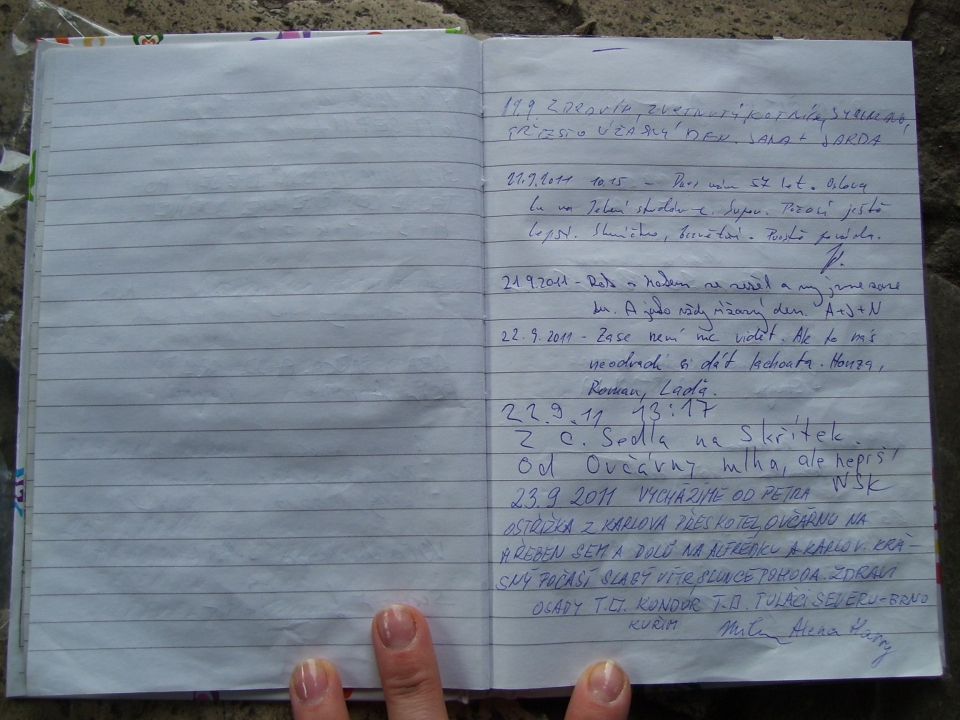 19.9. ZDRAVÍ, ZVRTNUTÝ KOTNÍK,
PŘESTO ÚŽASNÝ DEN. JANA + JARDA
21.9.2011 10.15 – Dnes nám 57 let. Oslava
tu na Jelení studánce. Super. Počasí ještě
lepší. Sluníčko, bezvětří. Prostě paráda.
21.9.2011 – Rok s rokem se sešel a my jsme zase
tu. A jako vždy úžasný den. A+J+N
22.9.2011 – Zase není nic vidět. Ale to nás
neodradí si dát lachoata. Honza,
Roman, Laďa.
22.9.11 13:17
Z Č. Sedla na Skřítek.
Od Ovčárny mlha, ale neprší
WSK
23.9 2011 VYCHÁZÍME OD PETRA
OSTŘIŽKA Z KARLOVA PŘES KOTEL, OVČÁRNU NA
HŘEBEN SEM A DOLŮ NA ALFRÉDKU A KARLOV. KRÁ-
SNÝ POČASÍ SLABÝ VÍTR, SLUNCE POHODA. ZDRAVÍ
OSADY T.O. KONDOR T.O. TULÁCI SEVERU – BRNO
KUŘIM Milan Alena Harry